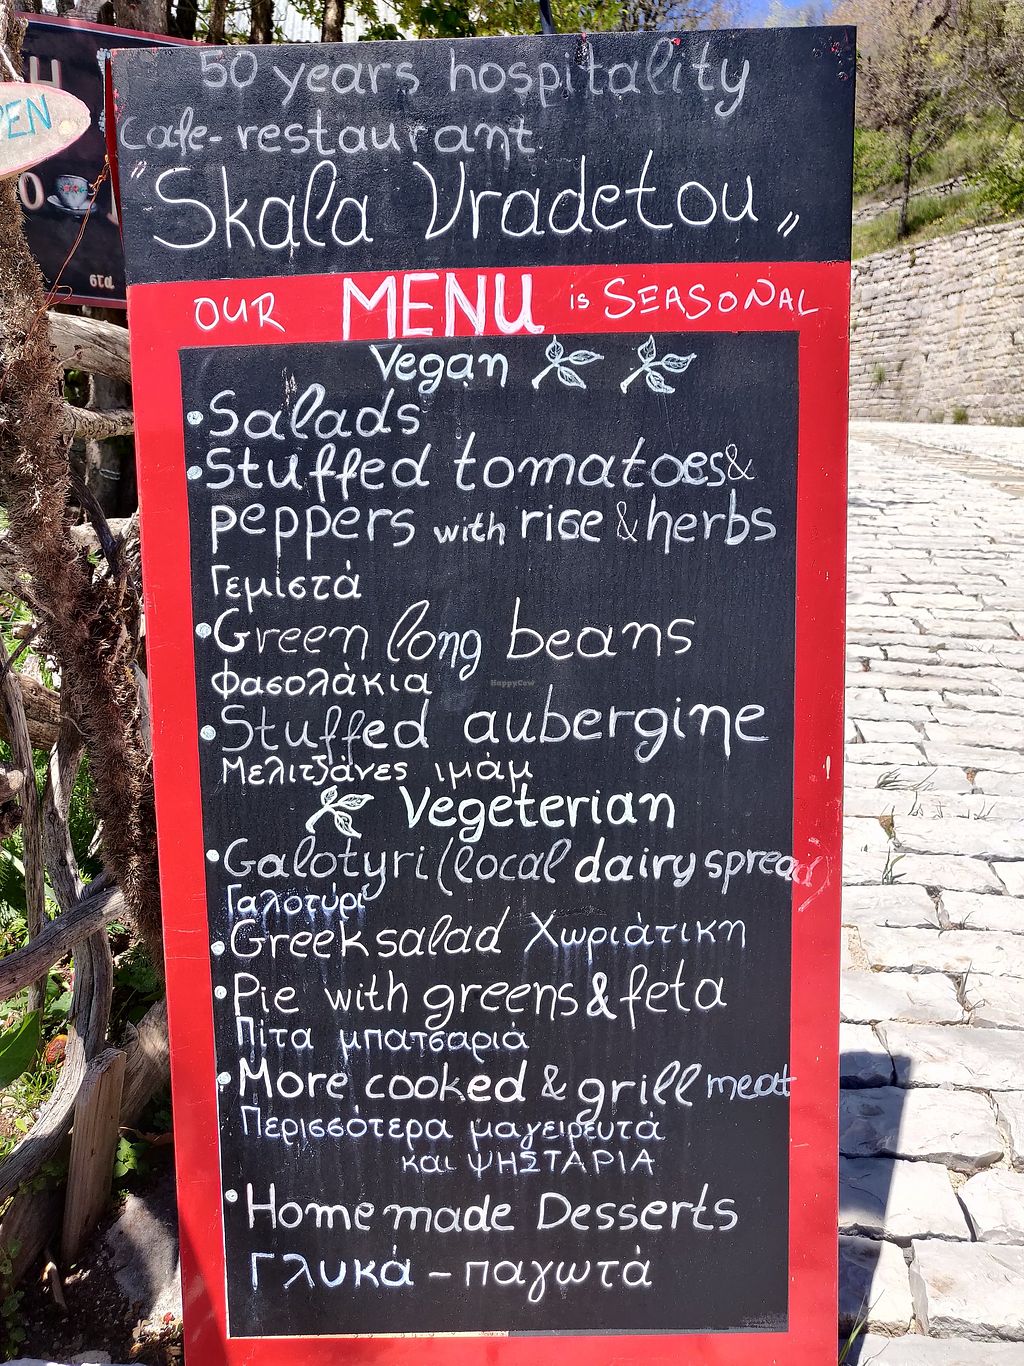 PEN
στα
50 years hospitality
Cafe-restaurant
"Skala Vradetou„
OUR MENU is SEASONAL
Vegan
•Salads
•Stuffed tomatoes&
peppers with rise & herbs
Γεμιστά
•Green long beans
Φασολάκια
•Stuffed aubergine
Μελιτζάνες ιμάμ
Vegeterian
•Galotyri (local dairy spread)
Γαλοτύρι
•Greek salad Χωριάτικη
•Pie with greens & feta
Πίτα μπατσαριά
•More cooked & grill meat
Περισσότερα μαγειρευτά
και ΨΗΣΤΑΡΙΑ
•Homemade Desserts
Γλυκά - παγωτά
HappyCow